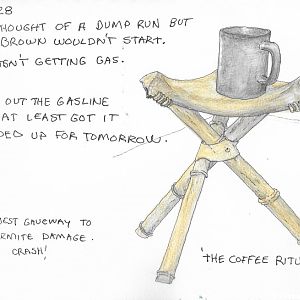 28
THOUGHT OF A DUMP RUN BUT
BROWN WOULDN'T START.
GETTING GAS.
OUT THE GASLINE
AT LEAST GOT IT
UP FOR TOMORROW.
TO
DAMAGE.
CRASH!
'THE COFFEE RITU